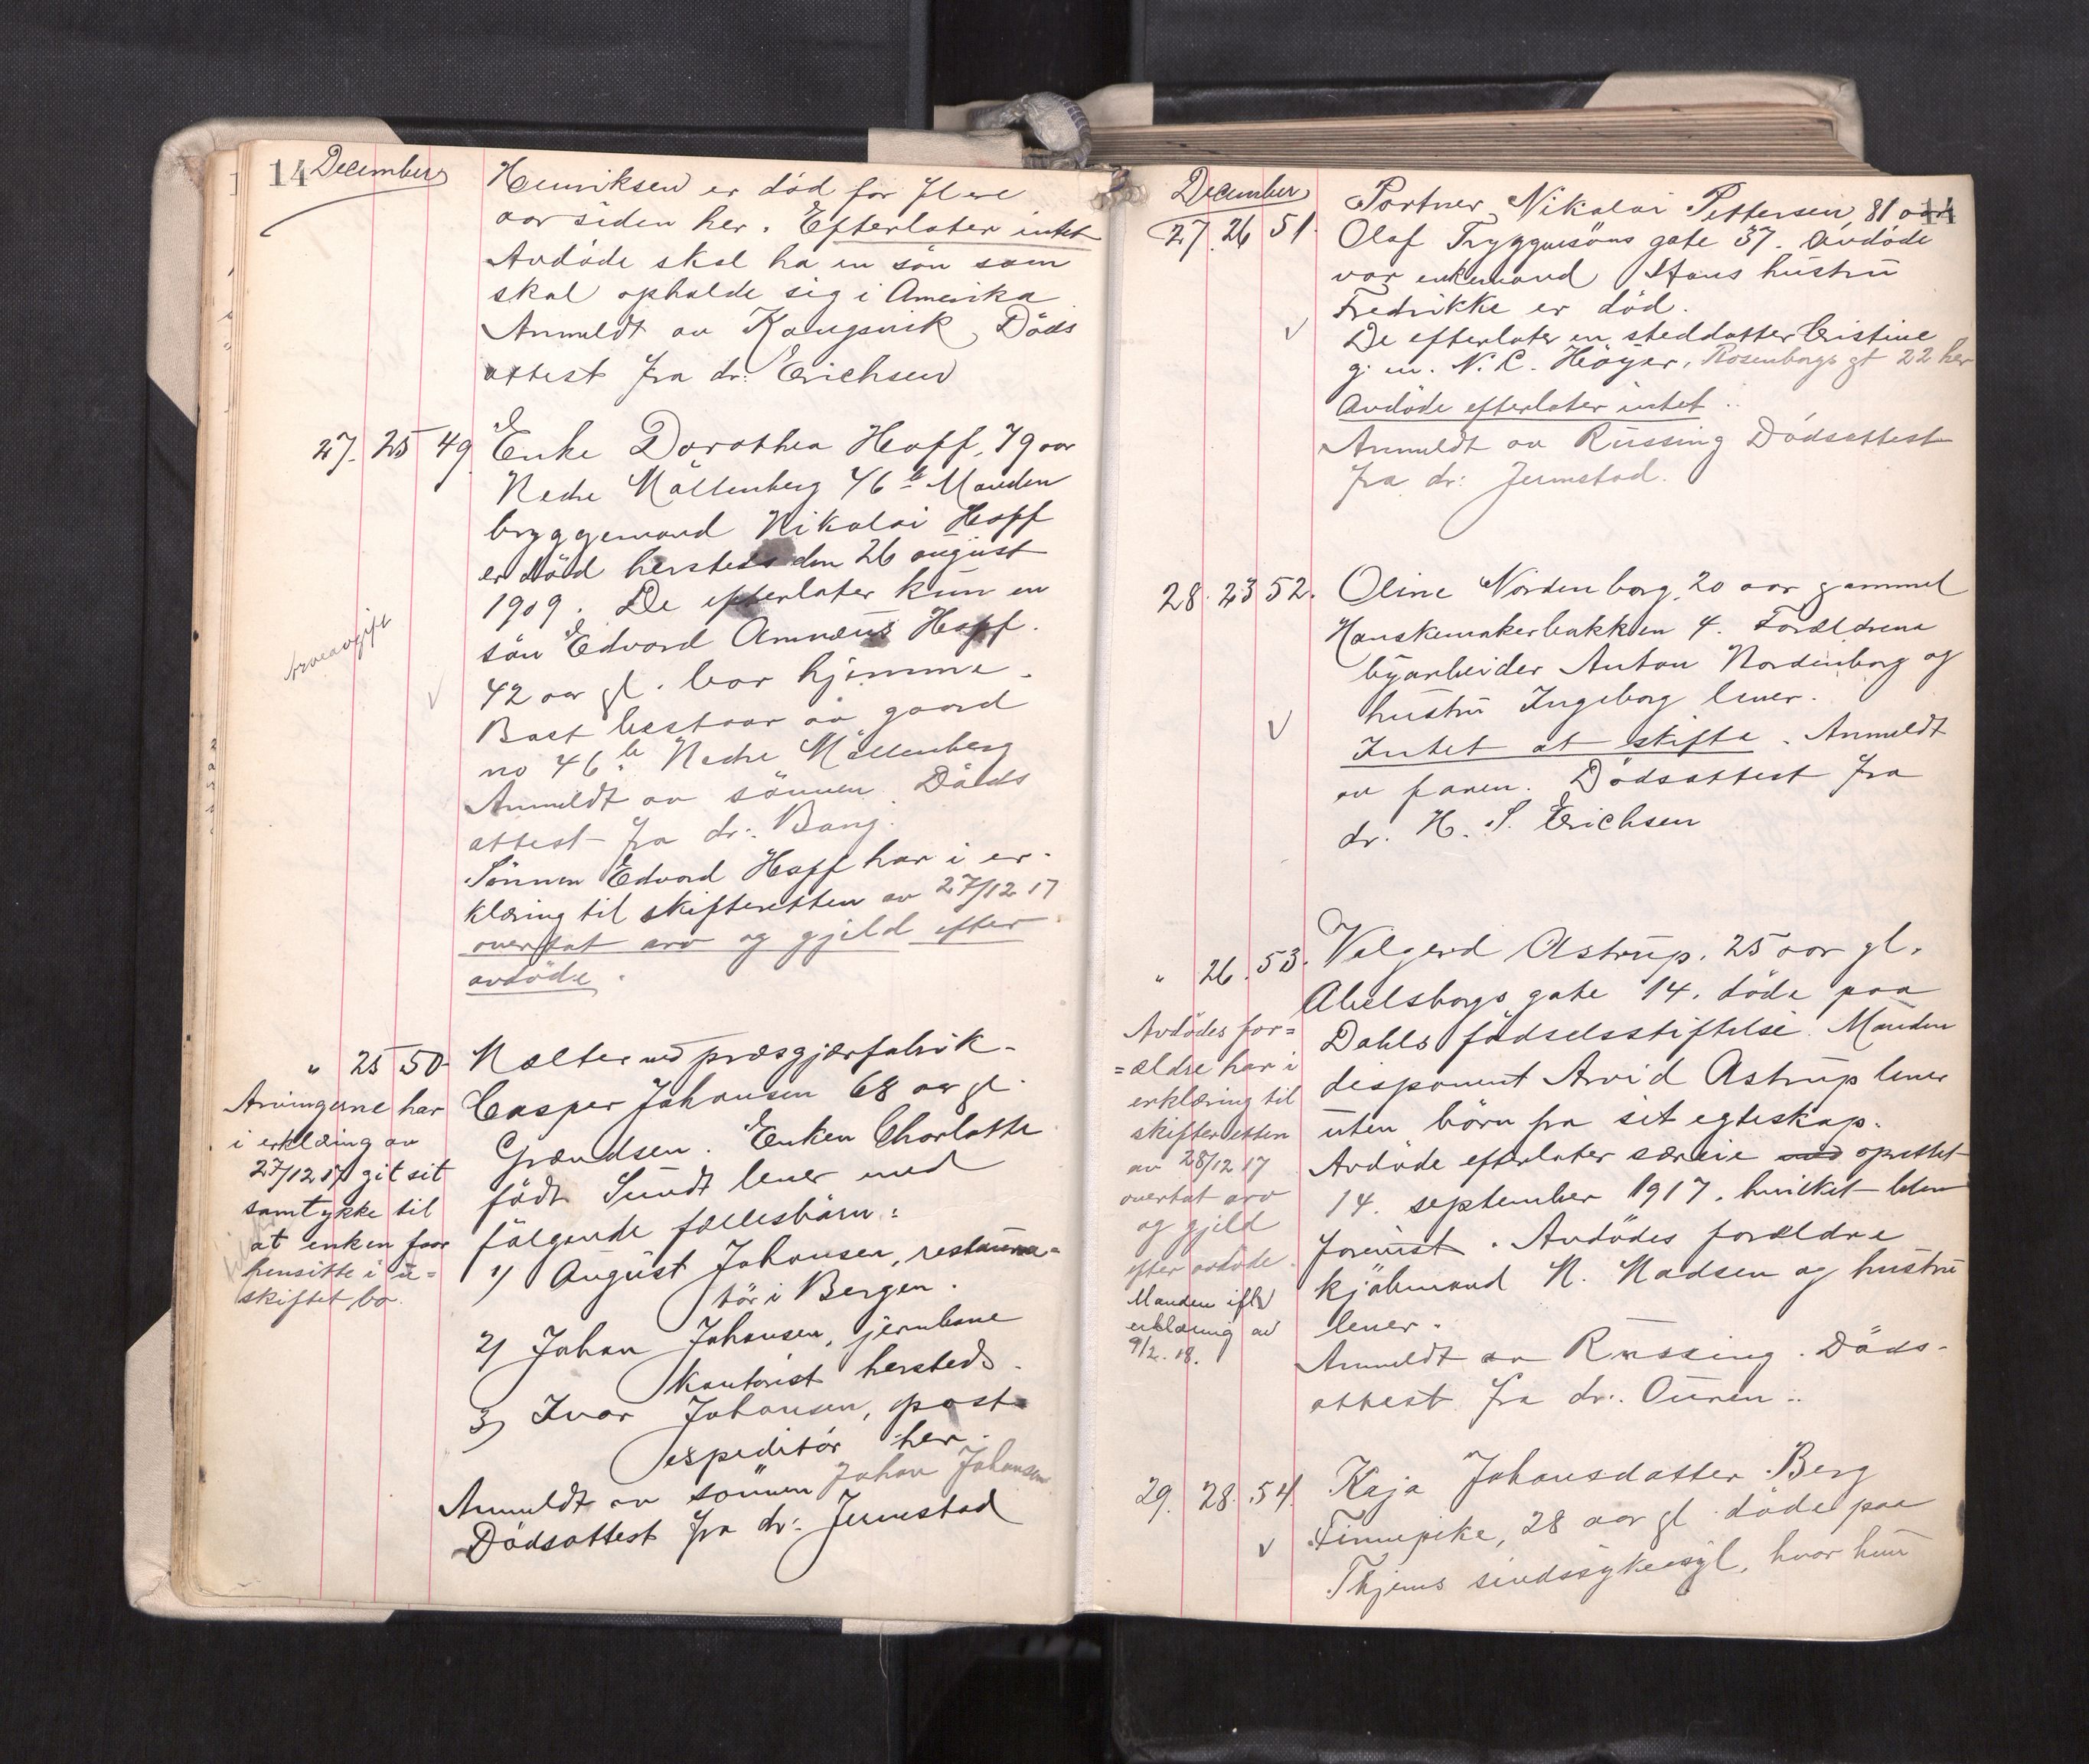 14 December
Henriksen er död for flere
aar siden her. Efterlater intet
Avdöde skal ha en sön som
skal opholde sig i Amerika
Anmeldt av Kongsvik, Döds
attest fra dr: Erichsen
27. 25 49. Enke Dorothea Hoff, 79 aar
Nedre Möllenberg 46 b Manden
bryggemand Nikolai Hoff
er död hersteds den 26 august
1909. De efterlater kun en
sön Edvard Hoff.
42 aar gl. bor hjemme.
arveavgift
Boet bestaar av gaard
no 46 b Nedre Möllenberg
Anmeldt av sönnen. Döds
attest fra dr: Bang.
Sönnen Edvard Hoff har i er-
klæring til skifteretten av 27/12 17
overtat arv og gjæld efter
avdöde.
" 25 50. Mælter ved presgjærfabrik.
Casper Johansen 68 aar gl.
Grændsen. Enken Charlotte
född Sundt lever med
fölgende fællesbärn:
1) August Johansen, restaura=
tör i Bergen.
2) Johan Johansen, jernbane
kontorist hersteds.
3) Ivar Johansen, post=
espeditör her.
Anmeldt av sönnen Johan Johansen
Dödsattest fra dr: Jermstad
Arvingerne har
i erklæring av
27/12 17 git sit
samtykke til
at enken faar
hensitte i u=
skiftet bo.
December 14
27. 26 51. Portner Nikolai Pettersen, 81 aar
Olaf Tryggvesöns gate 37. Avdöde
var enkemand Hans hustru
Fredrikke er död.
De efterlater en steddatter Cristine
g. m. N. C. Höyer, Rosenborgs gt 22 her
Avdöde efterlater intet.
Anmeldt av Rüssing Dödsattest
fra dr: Jermstad.
28. 23 52. Oline Nordenborg, 20 aar gammel
Hanskemakerbakken 4. Forældrene
byarbeider Anton Nordenborg og
hustru Ingeborg lever.
Intet at skifte. Anmeldt
av faren. Dödsattest fra
dr. H. S. Erichsen
" 26. 53. Valgerd Astrup, 25 aar gl.
Abelsborgs gate 14. döde paa
Dahls födselsstiftelse. Manden
disponent Arvid Astrup lever
uten börn fra sit egteskap.
Avdöde efterlater særeie oprettet
14. september 1917, hvilket blev
forevist. Avdödes forældre
kjöbmand N. Madsen og hustru
lever.
Anmeldt av Rüssing. Döds-
attest fra dr: Ouren.
Avdödes for=
=ældre har i
erklæring til
skifteretten
av 28/12 17
overtat arv
og gjeld
efter avdöde.
Manden ifl
erklæring av
9/2. 18.
29. 28. 54. Kaja Johansdatter Berg
Finnepike, 28 aar gl. döde paa
Thjems sindssykeasyl, hvor hun